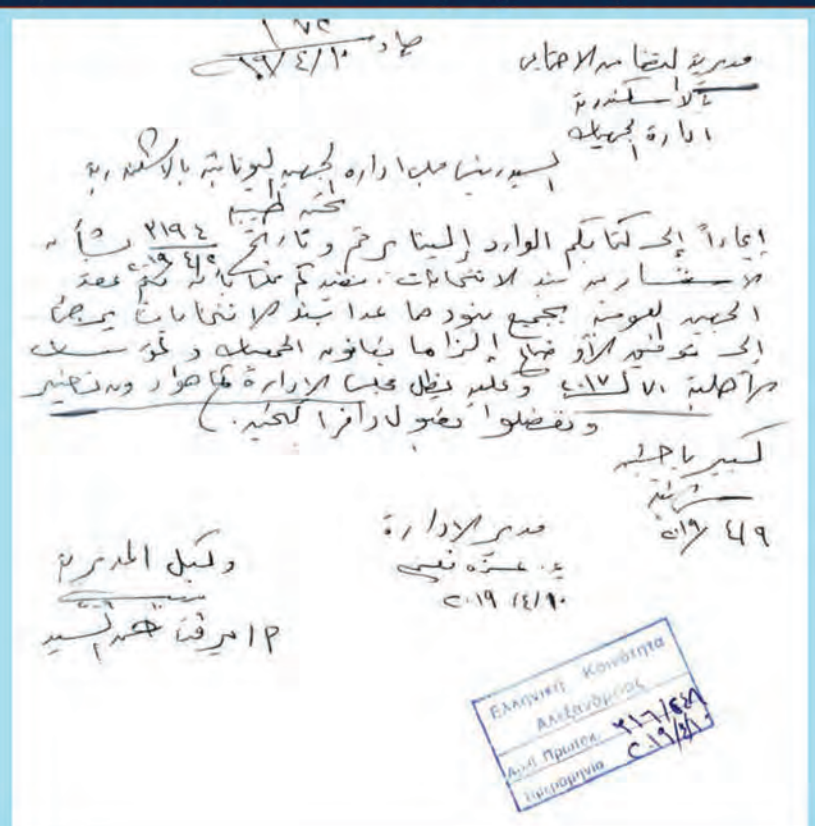 صادر ١٧٢
٢٠١٩/٤/١٠
مديرية التضامن الاجتماعى
بالاسكندرية
ادارة الجمعيات
السيد رئيس مجلس اداره الجمعية اليونانية بالاسكندرية
تحيه طيبه
إيماءاً إلى كتابكم الوارد إلينا برقم ٣١٩٤ وتاريخ ٢٠١٩/٤/٩ بشأن
الاستفسار عن بند الانتخابات. نفيدكم علماً بأنه يتم عقد
الجمعيه العموميه بجميع بنودها عدا بند الانتخابات يرجئ
إلى توفيق الأوضاع إلزاما بقانون الجمعيات والمؤسسات
الأهلية ٧٠ / ٢٠١٧ وعليه يظل مجلس الإدارة كما هو دون تغيير
وتفضلوا بقبول وافر التحيه.
كبير باحثين
٢٠١٩/٤/٩
مدير الادارة
٢٠١٩/٤/١٠
وكيل المديرية
ميرفت السيد
Ελληνική Κοινότητα
Αλεξανδρείας
Αριθ. Πρωτοκ.
Ημερομηνία ٢٠١٩/٤/١٠